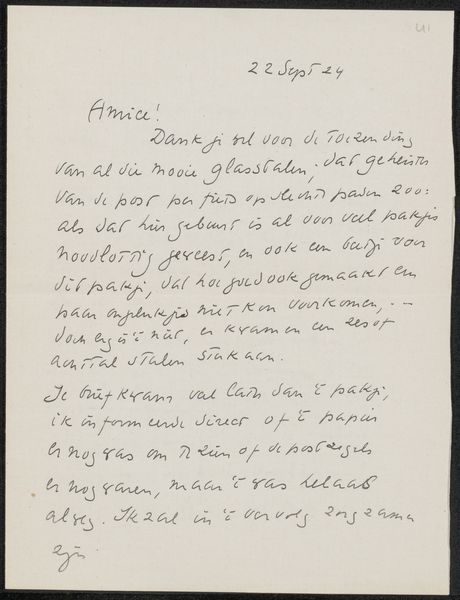 22 Sept 24
Amice!
Dank je wel voor de toezending
van al die mooie glasstalen; dat
van de post per fiets op slechte paden zoo:
als dat hier gebeurt is al voor veel pakjes
noodlottig geweest, en ook een voor
dit pakje, dat hoe goed ook gemaakt een
paar ongelukjes niet kon voorkomen, —
doch erg is 't niet, er kwamen een zes of
achttal stalen stuk aan.
Je brief kwam wat later dan 't pakje,
ik informeerde direct of 't papier
er nog was om te zien of de postzegels
er nog waren, maar 't was helaas
al weg. Ik zal in 't vervolg zorgzamer
zijn